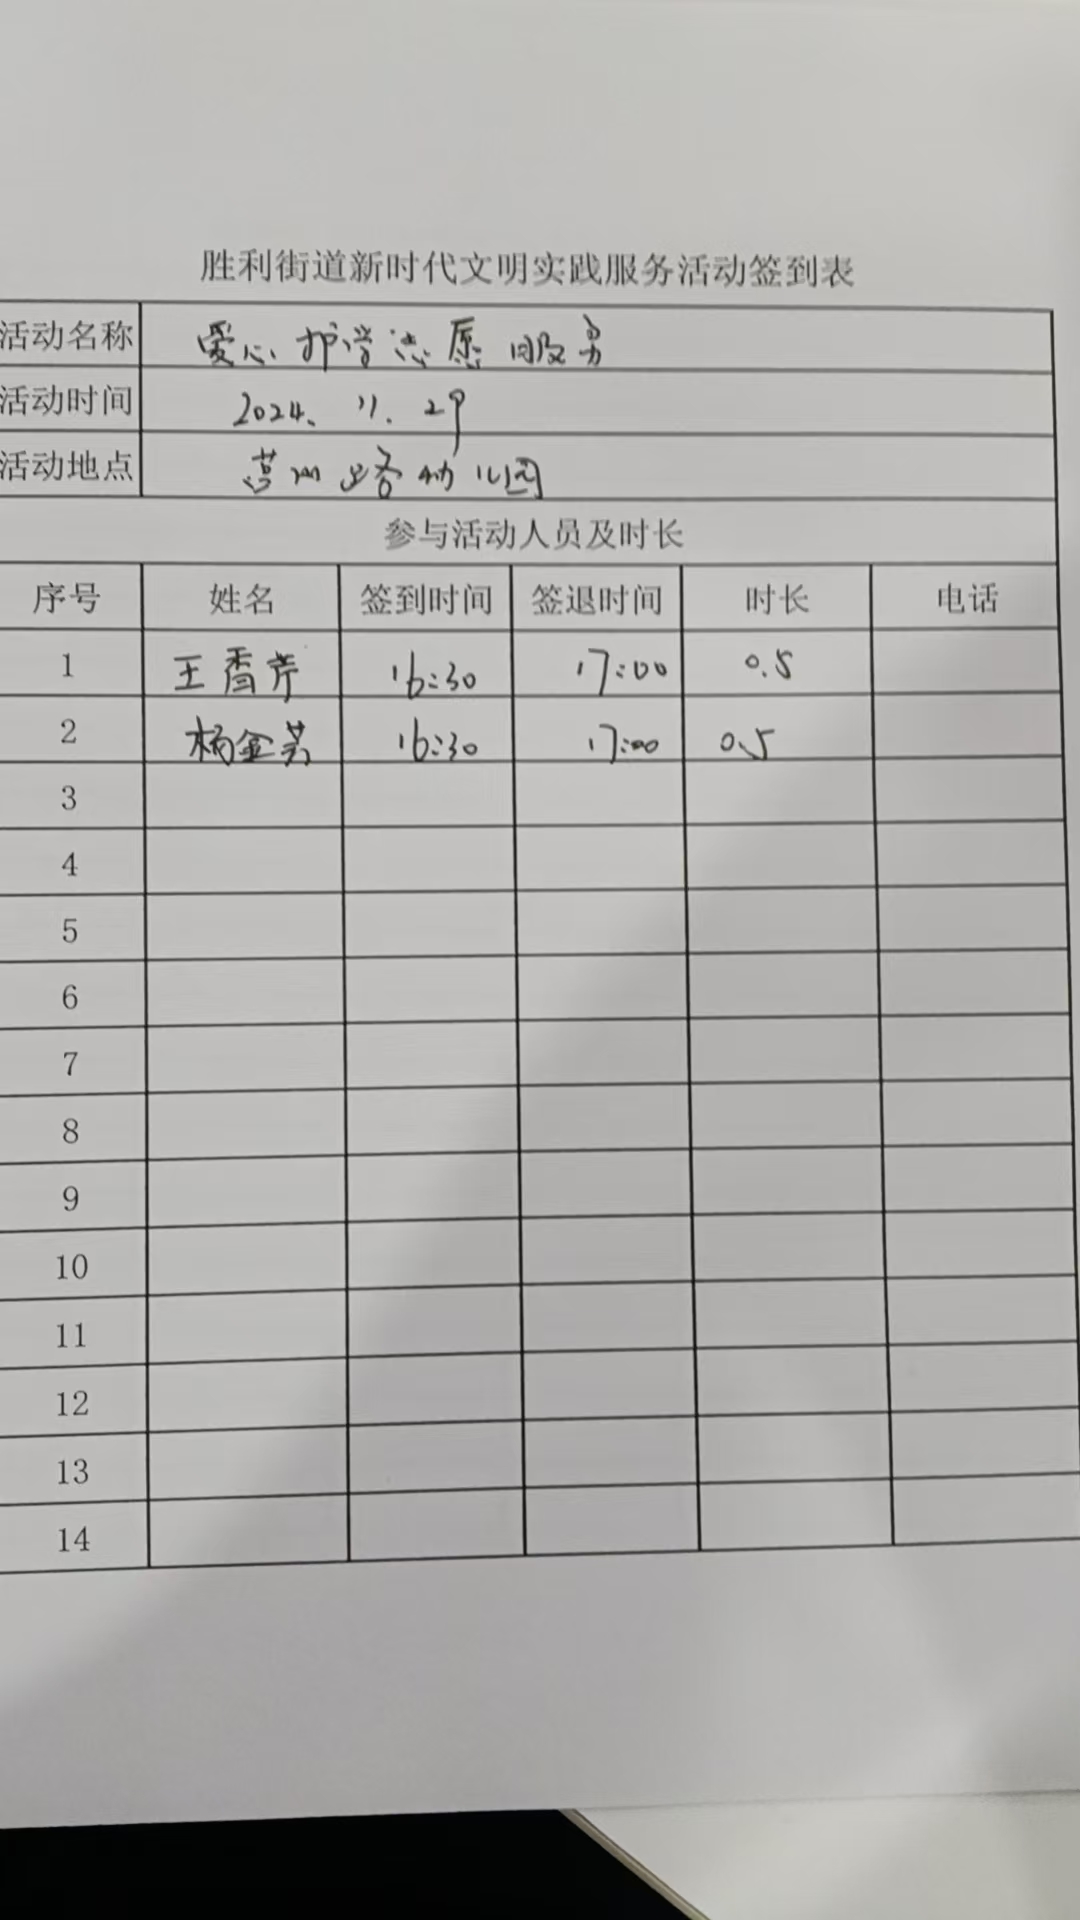 胜利街道新时代文明实践服务活动签到表
活动名称 爱心护学志愿服务
活动时间 2024.11.29
活动地点 营州路幼儿园
参与活动人员及时长
序号 姓名 签到时间 签退时间 时长 电话
1 王香芹 16:30 17:00 0.5
2 杨金 16:30 17:00 0.5
3
4
5
6
7
8
9
10
11
12
13
14